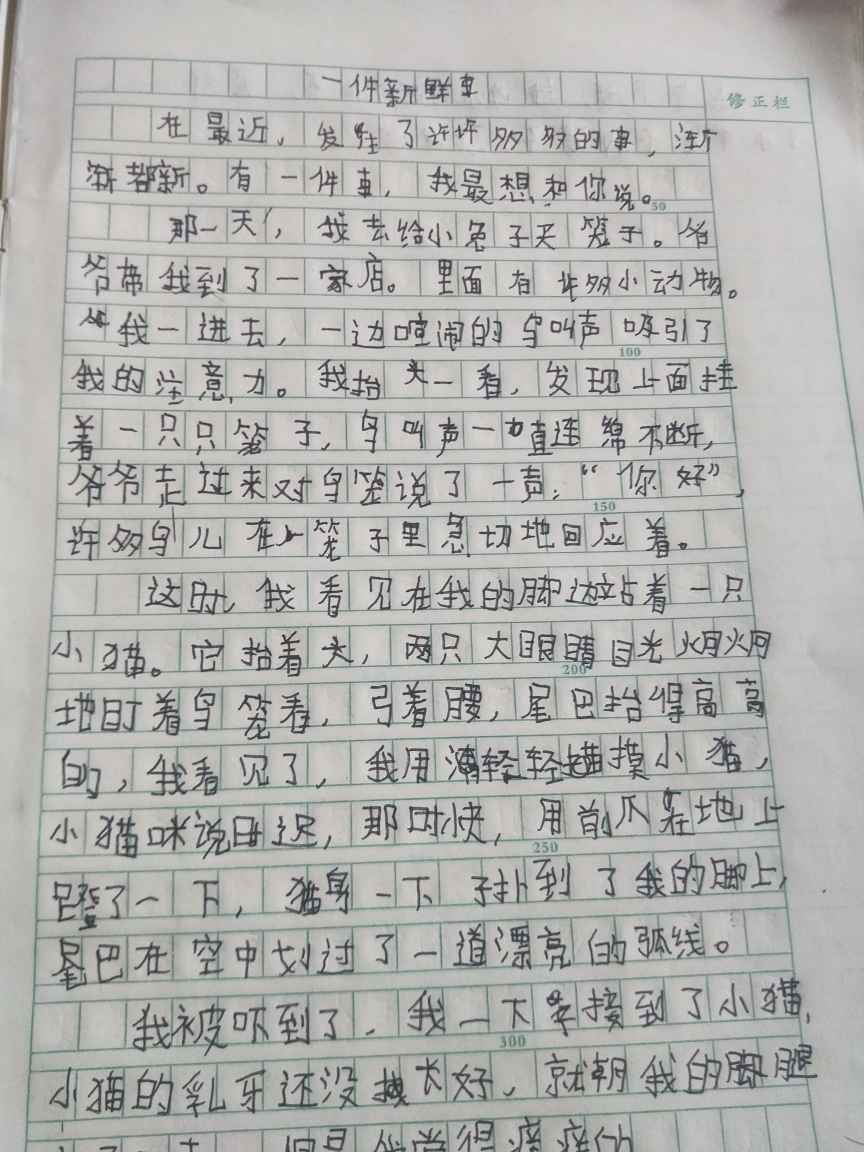 一件新鲜事
修正栏
在最近，发生了许许多多的事，渐
渐都新。有一件事，我最想和你说。
50
那一天，我去给小兔子买笼子。爷
爷带我到了一家店。里面有许多小动物。
我一进去，一边喧闹的鸟叫声吸引了
100
我的注意力。我抬头一看，发现上面挂
着一只只笼子，鸟叫声一直连绵不断，
爷爷走过来对鸟笼说了一声：“你好”，
150
许多鸟儿在笼子里急切地回应着。
这时，我看见在我的脚边站着一只
小猫。它抬着头，两只大眼睛目光炯炯
200
地盯着鸟笼看，弓着腰，尾巴抬得高高
的，我看见了，我用轻轻摸小猫，
小猫咪说时迟，那时快，用前爪在地上
250
蹬了一下，猫身一下子扑到了我的脚上，
尾巴在空中划过了一道漂亮的弧线。
我被吓到了，我一下接到了小猫，
300
小猫的乳牙还没长好，就朝我的脚腿
但是我觉得痒痒的